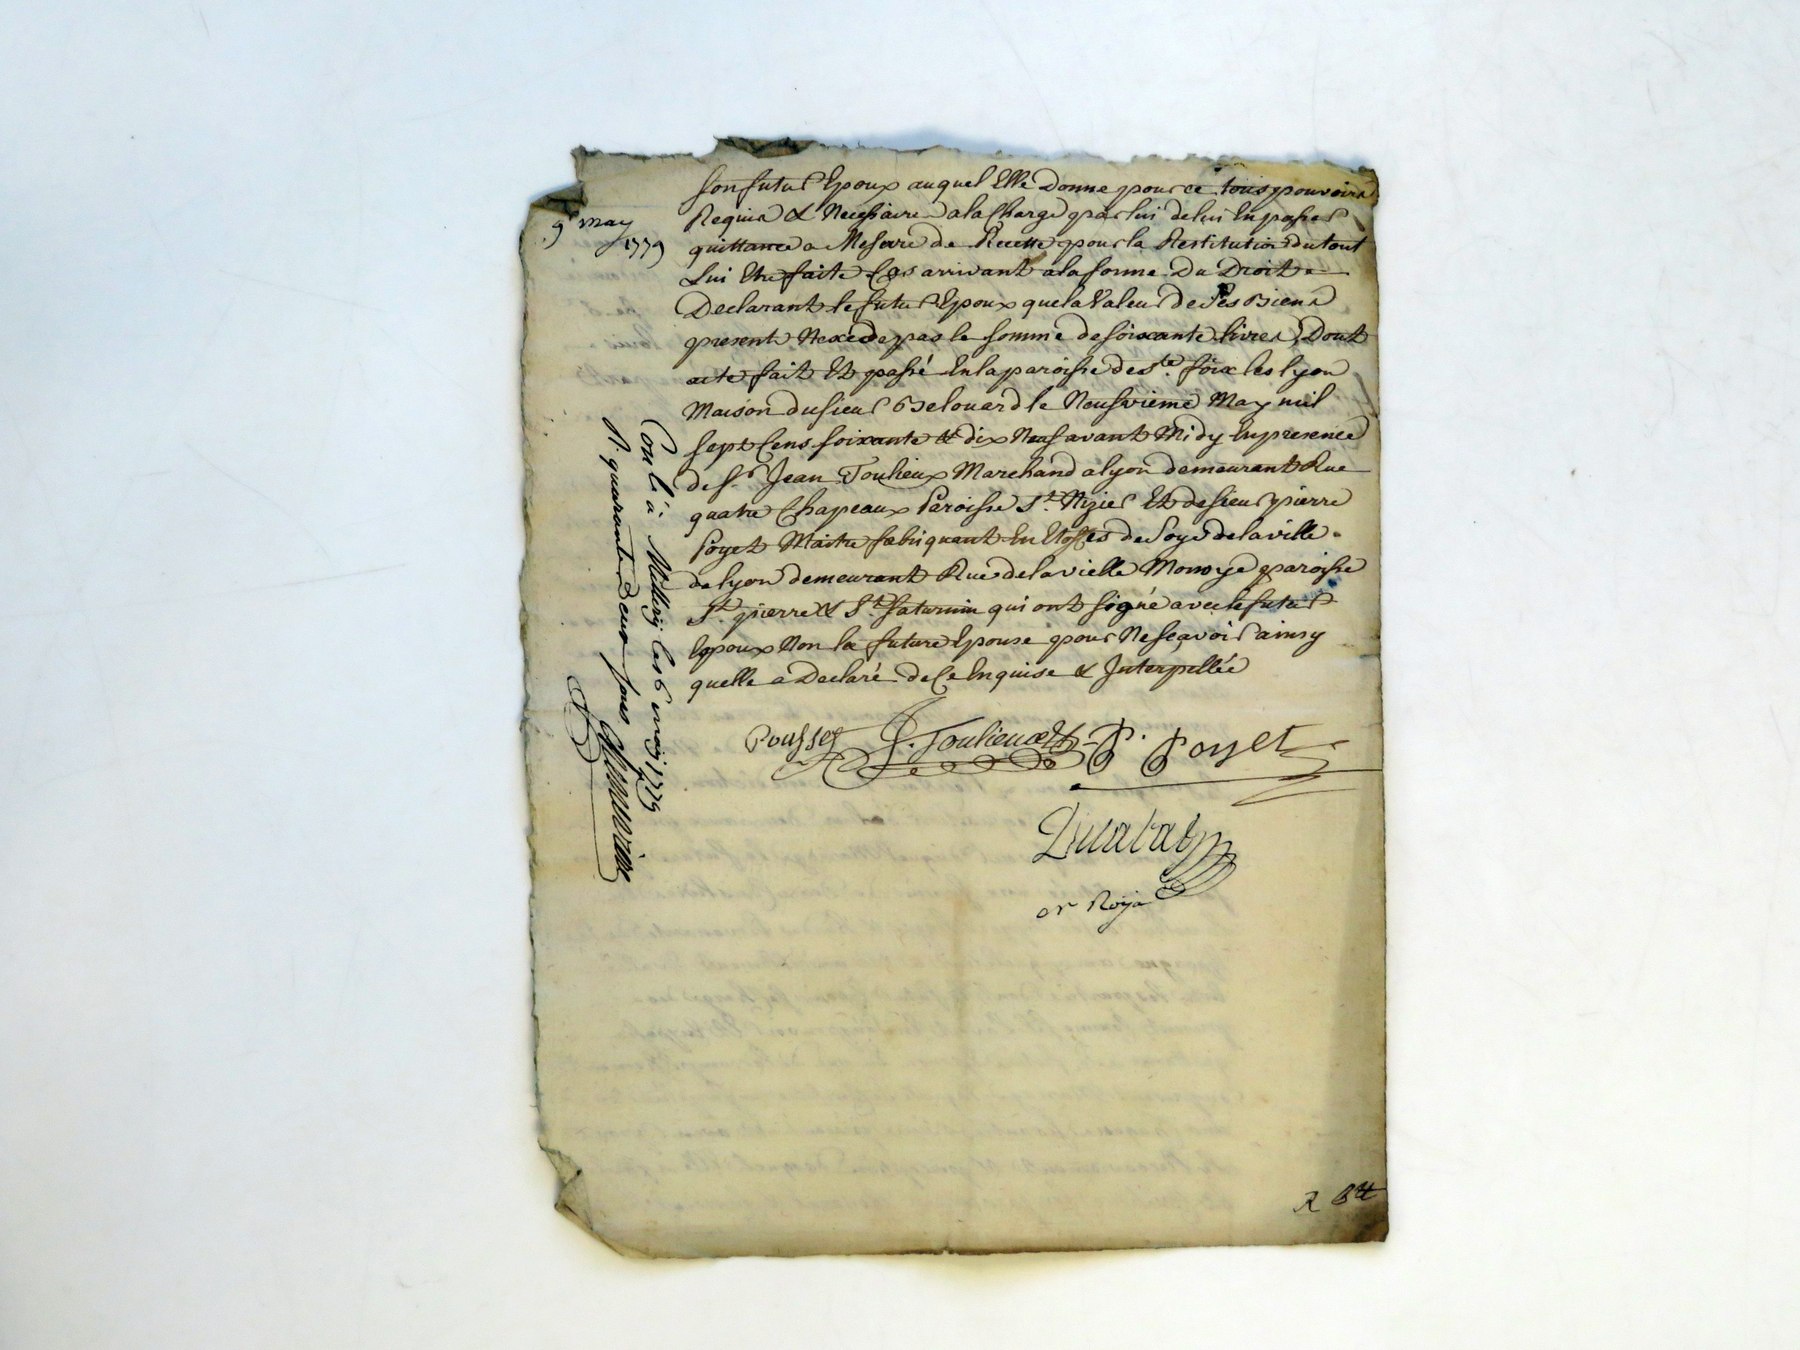 9e May
1779
son futur Epoux auquel Elle Donne pour ce tous pouvoirs
Requis & Necessaire a la Charge par lui de lui En passer
quittance a Mesure de Recette pour la Restitution du tout
Lui Etre faite Cas arrivant a la forme Du Droit
Declarant le futur Epoux que la Valeur de Ses Biens
present Nexcede pas la somme de soixante livres, Dont
acte fait Et passé En la paroisse de Ste. foix les lyon
Maison du sieur Belouard le Neufvieme May mil
sept Cens soixante & dix Neuf avant Midy En presence
de Sr. Jean Toulieux Marchand a lyon demeurant Rue
quatre Chapeaux Paroisse St. Nizier Et de sieur pierre
Poyet Maitre fabriquant En Etoffes de Soye de la ville
de lyon demeurant Rue de la vielle Monoye paroisse
St. pierre & St. Saturnin qui ont signé avec le futur
Epoux Non la future Epouse pour Ne sçavoir ainsy
quelle a Declaré de Ce Enquise & Interpellée
Pousset J. Toulieux P. Poyet
nr Roya
Con le à Millery le 6 may 1779
R. quarante deux sous